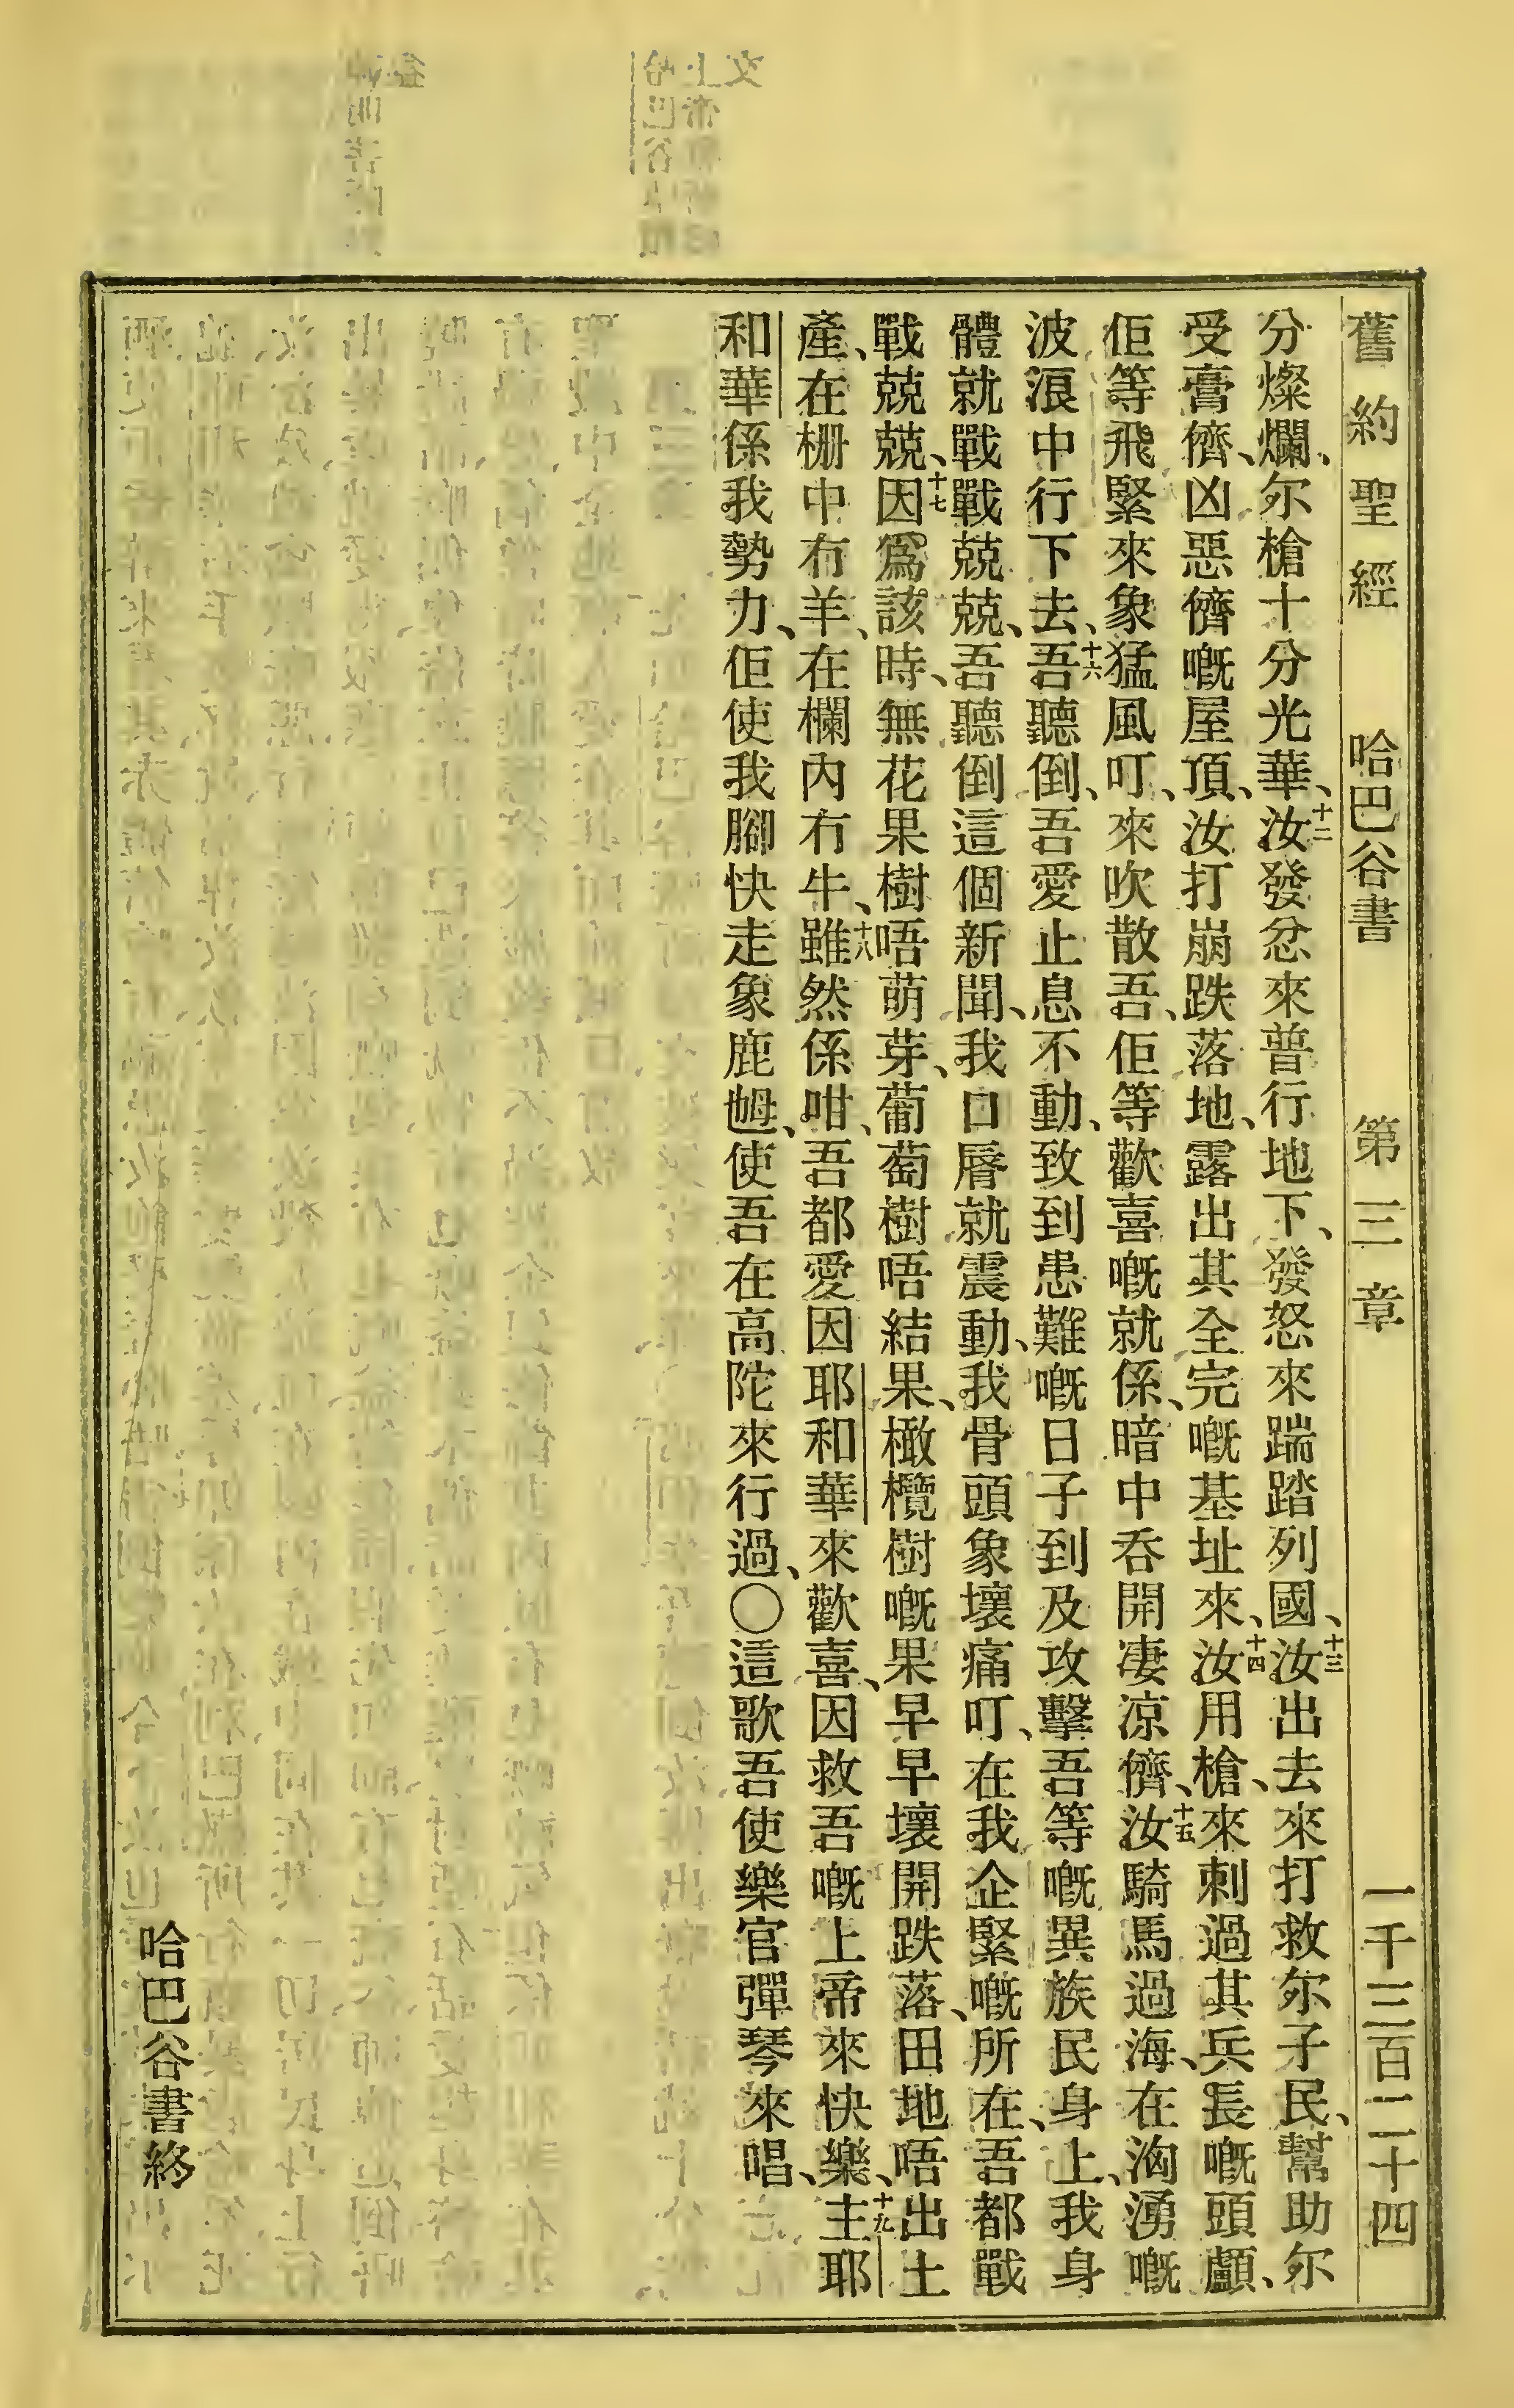 舊約聖經 哈巴谷書 第三章 一千三百二十四
分燦爛、尔槍十分光華、十二汝發忿來普行地下、發怒來踹踏列國、十三汝出去來打救尔子民、幫助尔
受膏儕、凶惡儕嘅屋頂、汝打崩跌落地、露出其全完嘅基址來、十四汝用槍、來刺過其兵長嘅頭顱、
佢等飛緊來象猛風叮、來吹散吾、佢等歡喜嘅就係、暗中吞開凄凉儕、十五汝騎馬過海、在洶湧嘅
波浪中行下去、十六吾聽倒、吾愛止息不動、致到患難嘅日子到及攻擊吾等嘅異族民身上、我身
體就戰戰兢兢、吾聽倒這個新聞、我口脣就震動、我骨頭象壞痛叮、在我企緊嘅所在、吾都戰
戰兢兢、十七因爲該時、無花果樹唔萌芽、葡萄樹唔結果、橄欖樹嘅果早早壞開跌落、田地唔出土
產、在柵中冇羊、在欄內冇牛、十八雖然係咁、吾都愛因耶和華來歡喜、因救吾嘅上帝來快樂、十九主耶
和華係我勢力、佢使我腳快走象鹿乸、使吾在高陀來行過、〇這歌吾使樂官彈琴來唱、
哈巴谷書終